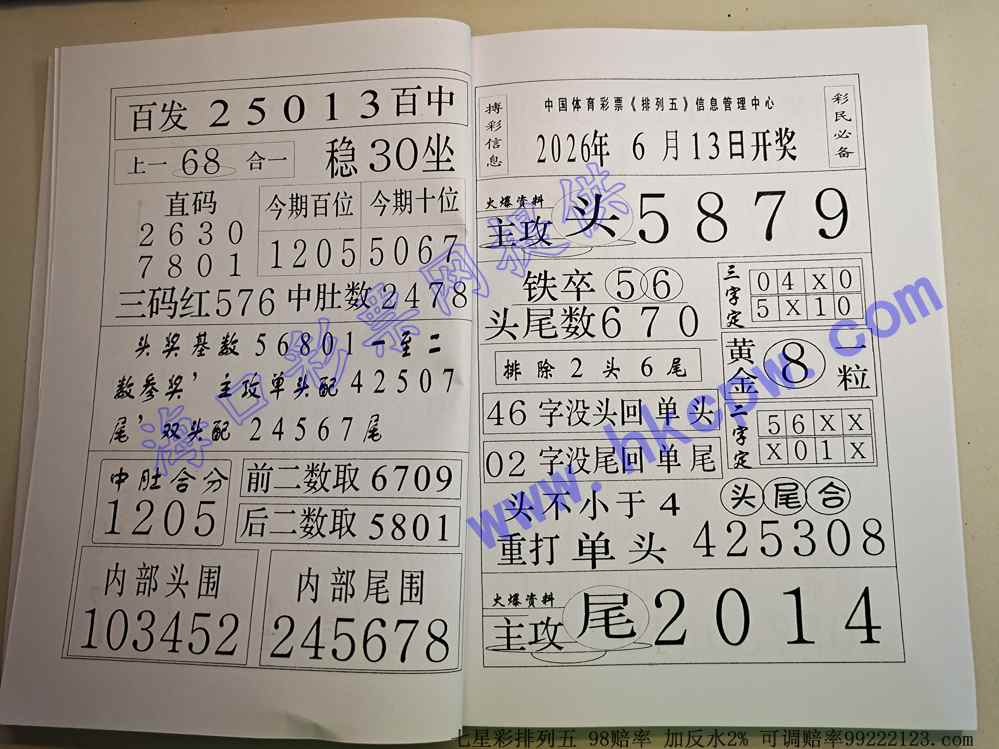 百发 25013 百中
上一 68 合一 稳 30 坐
直码
2630
7801
今期百位 今期十位
1205 5067
三码红 576 中肚数 2478
头奖基数 56801 一至二
数参奖’主攻单头配 42507
尾’双头配 24567 尾
中肚合分
1205
前二数取 6709
后二数取 5801
内部头围
103452
内部尾围
245678
搏彩信息
中国体育彩票《排列五》信息管理中心
2026年 6 月 13日开奖
彩民必备
火爆资料
主攻 头 5879
铁卒 56
头尾数 670
排除 2 头 6 尾
三字定
04X0
5X10
黄金 8 粒
46 字没头回 单 头
02 字没尾回 单 尾
二字定
56XX
X01X
头不小于 4
头尾合
重打 单 头 425308
火爆资料
主攻 尾 2014
海口彩票网提供
www.hkcpw.com
七星彩排列五 98赔率 加反水2% 可调赔率99222123.com